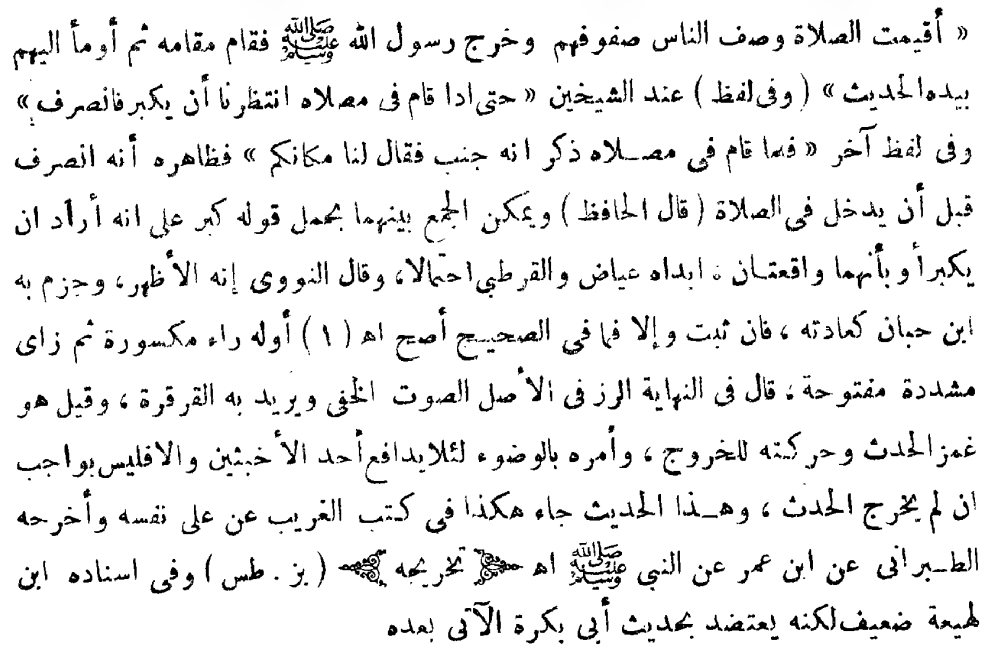 « أقيمت الصلاة وصف الناس صفوفهم وخرج رسول الله ﷺ فقام مقامه ثم أومأ اليهم
بيده الحديث » ( وفى لفظ ) عند الشيخين « حتى اذا قام فى مصلاه انتظرنا أن يكبر فانصرف »
وفى لفظ آخر « فلما قام فى مصلاه ذكر انه جنب فقال لنا مكانكم » فظاهره أنه انصرف
قبل أن يدخل فى الصلاة ( قال الحافظ ) ويمكن الجمع بينهما بحمل قوله كبر على انه أراد ان
يكبر أو بأنهما واقعتان ، ابداه عياض والقرطبى احتمالا، وقال النووى إنه الأظهر، وجزم به
ابن حبان كعادته ، فان ثبت وإلا فما فى الصحيح أصح اه ( ١ ) أوله راء مكسورة ثم زاى
مشددة مفتوحة ، قال فى النهاية الرز فى الأصل الصوت الخفى ويريد به القرقرة ، وقيل هو
غمز الحدث وحركته للخروج ، وأمره بالوضوء لئلا يدافع أحد الأخبثين والا فليس بواجب
ان لم يخرج الحدث ، وهذا الحديث جاء هكذا فى كتب الغريب عن على نفسه وأخرجه
الطبرانى عن ابن عمر عن النبى ﷺ اه تخريجه ( بز . طس ) وفى اسناده ابن
لهيعة ضعيف لكنه يعتضد بحديث أبى بكرة الآتى بعده